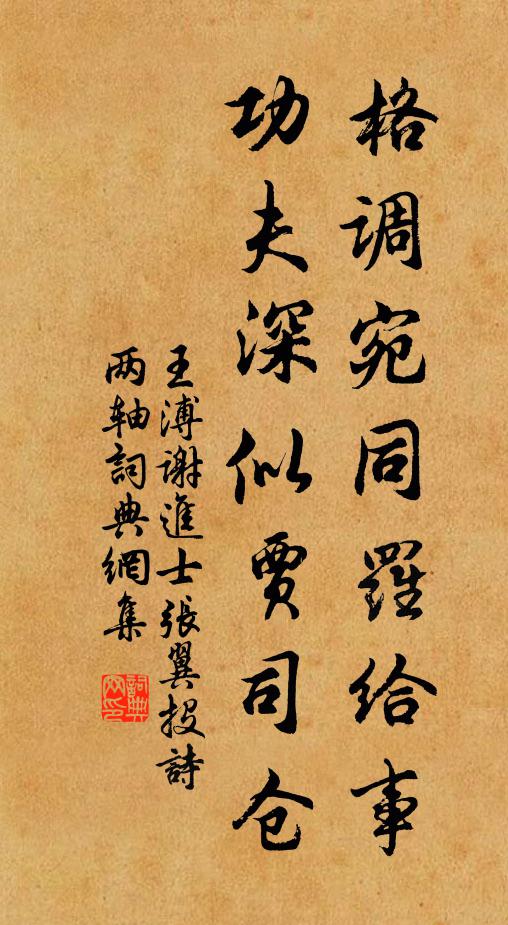 格调宛同羅给事
功夫深似贾司仓
王溥谢進士張翼投詩
两轴詞典網集
詞典网印